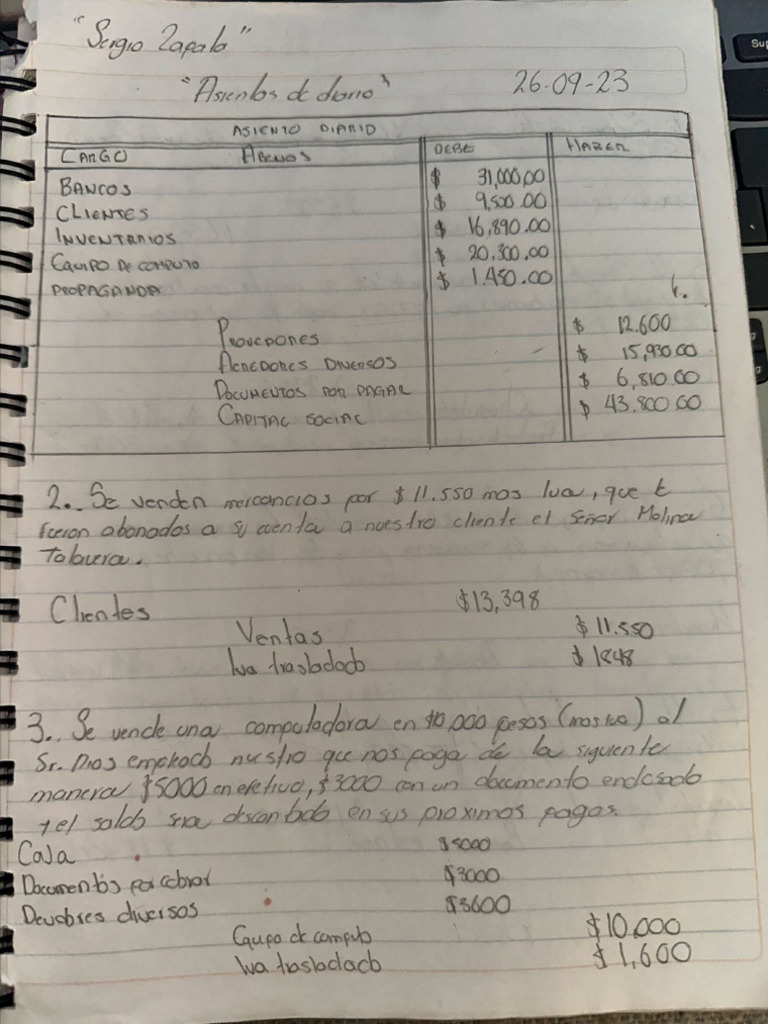 "Sergio Zapata"
"Asientos de diario" 26-09-23
ASIENTO DIARIO
CARGO ABONOS DEBE HABER
BANCOS $ 31,000,00
CLIENTES $ 9,500.00
INVENTARIOS $ 16,890.00
EQUIPO DE COMPUTO $ 20,300,00
PROPAGANDA $ 1.450.00
PROVEDORES $ 12.600
ACREDORES DIVERSOS $ 15,930.00
DOCUMENTOS POR PAGAR $ 6,810.00
CAPITAL SOCIAL $ 43.800.00
2.. Se venden mercancias por $11.550 mas Iva, que
fueron abonados a su cuenta a nuestro cliente el señor Molina
Talavera.
Clientes $13,398
Ventas $11.550
Iva trasladado $1848
3.. Se vende una computadora en $10,000 pesos (mas Iva) al
Sr. Rios empleado nuestro que nos paga de la siguiente
manera $5000 en efectivo, $3000 con un documento endosado
y el saldo sera descontado en sus proximos pagos.
Caja $5000
Documentos por cobrar $3000
Deudores diversos $3600
Equipo de computo $10,000
Iva trasladado $1,600
Sup